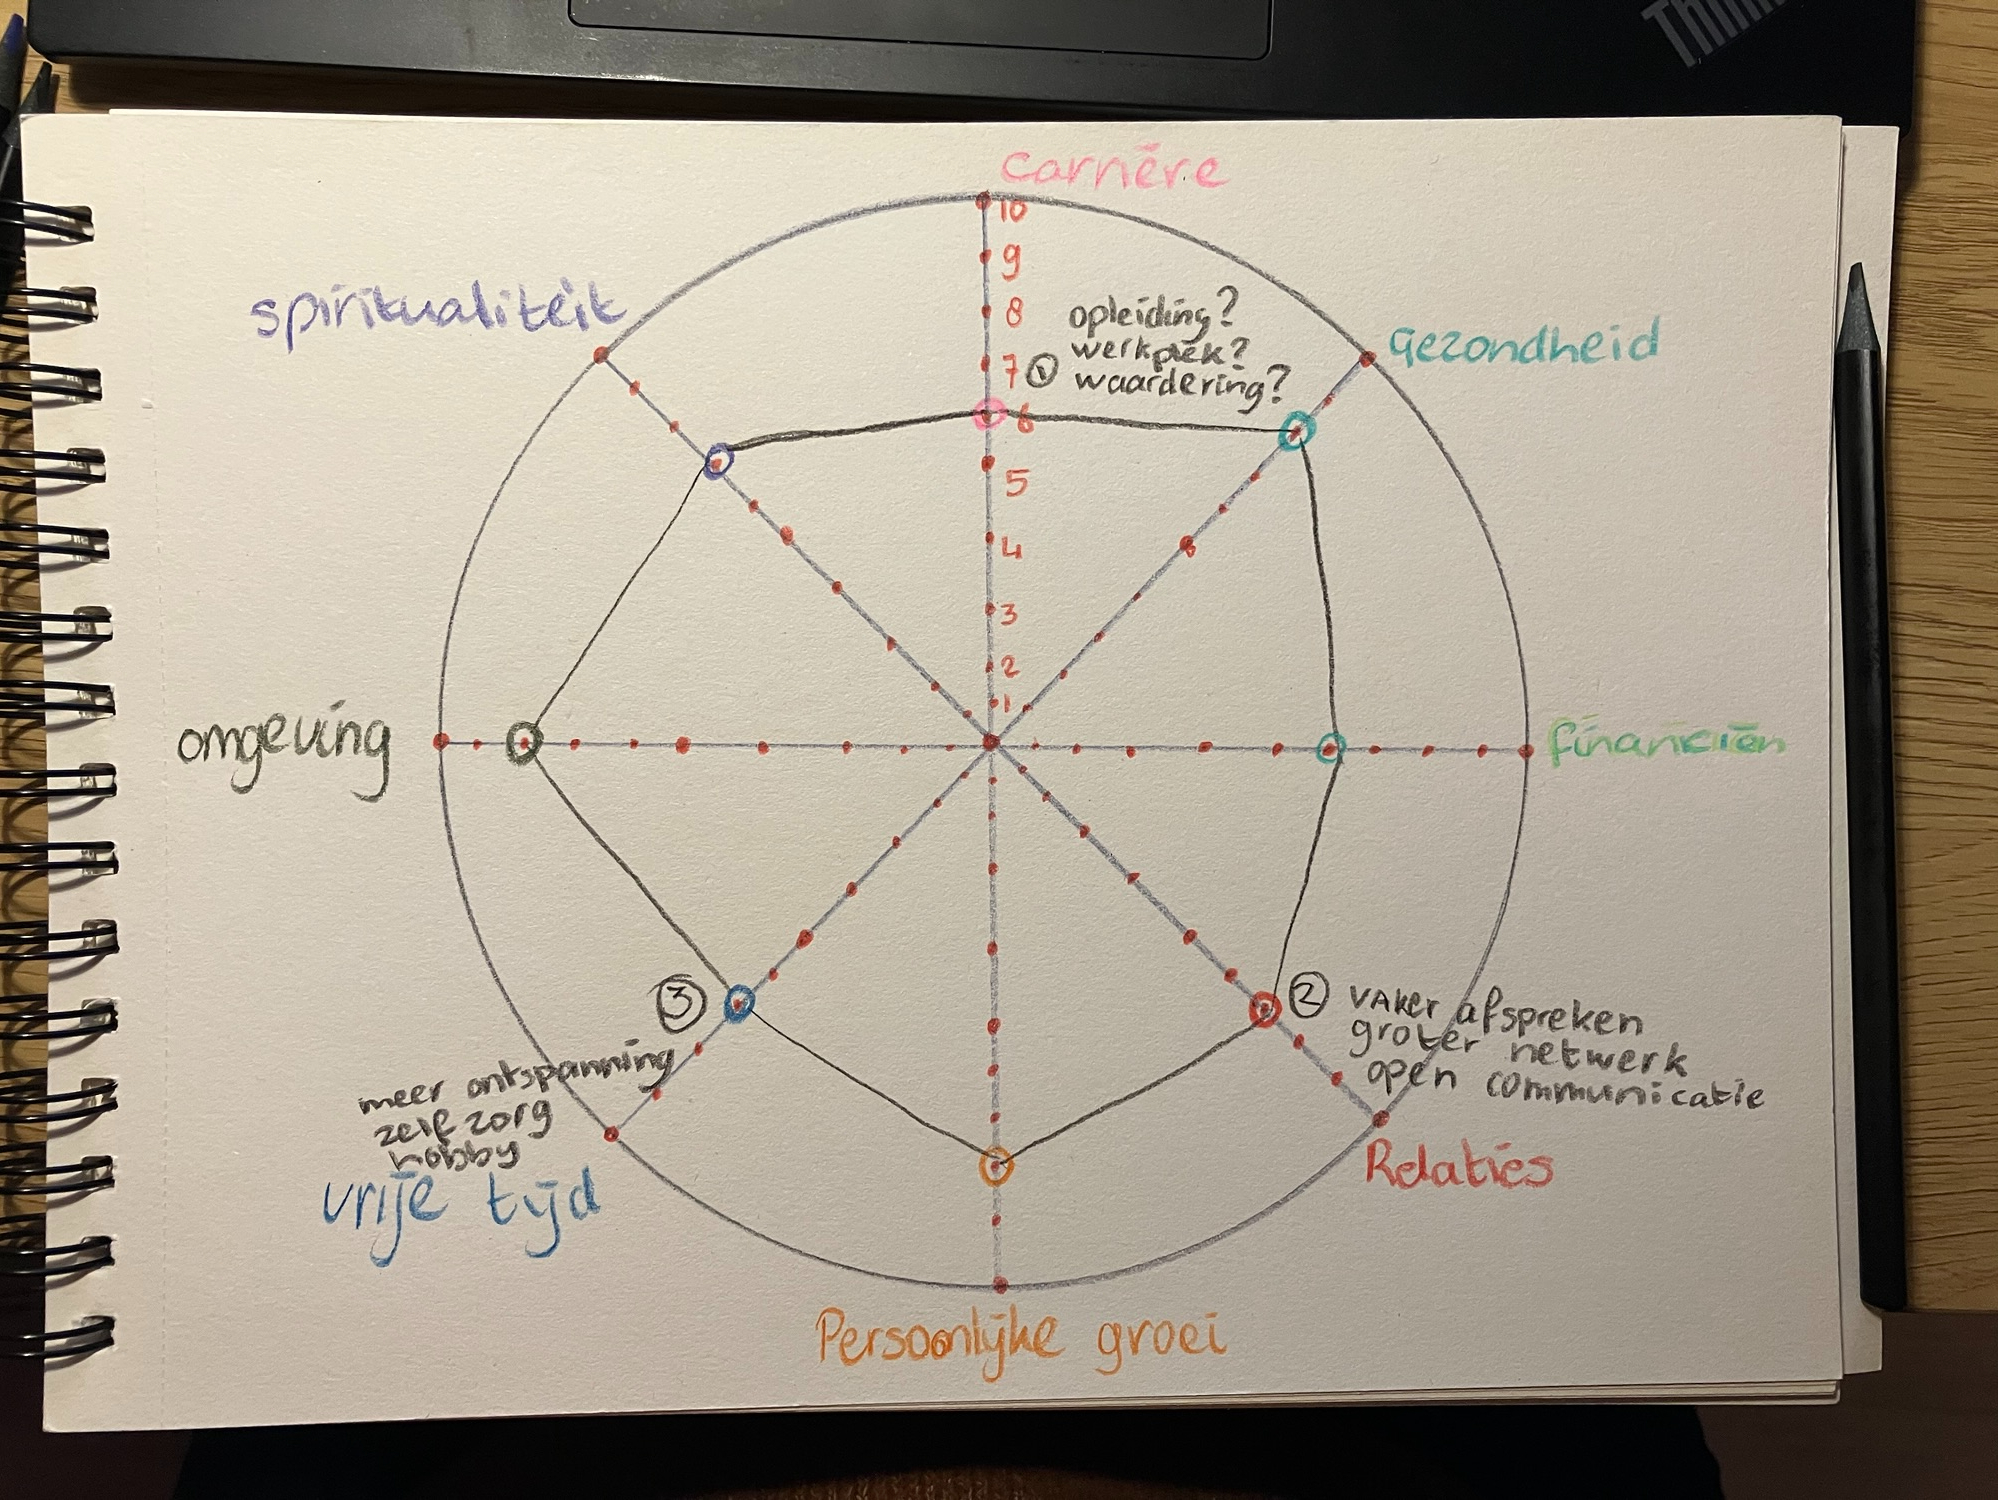 Think
carrière
10
9
8
7
6
5
4
3
2
1
opleiding?
werkplek?
① waardering?
spiritualiteit
Gezondheid
omgeving
financiën
③
meer ontspanning
zelfzorg
hobby
vrije tijd
② vaker afspreken
groter netwerk
open communicatie
Relaties
Persoonlijke groei